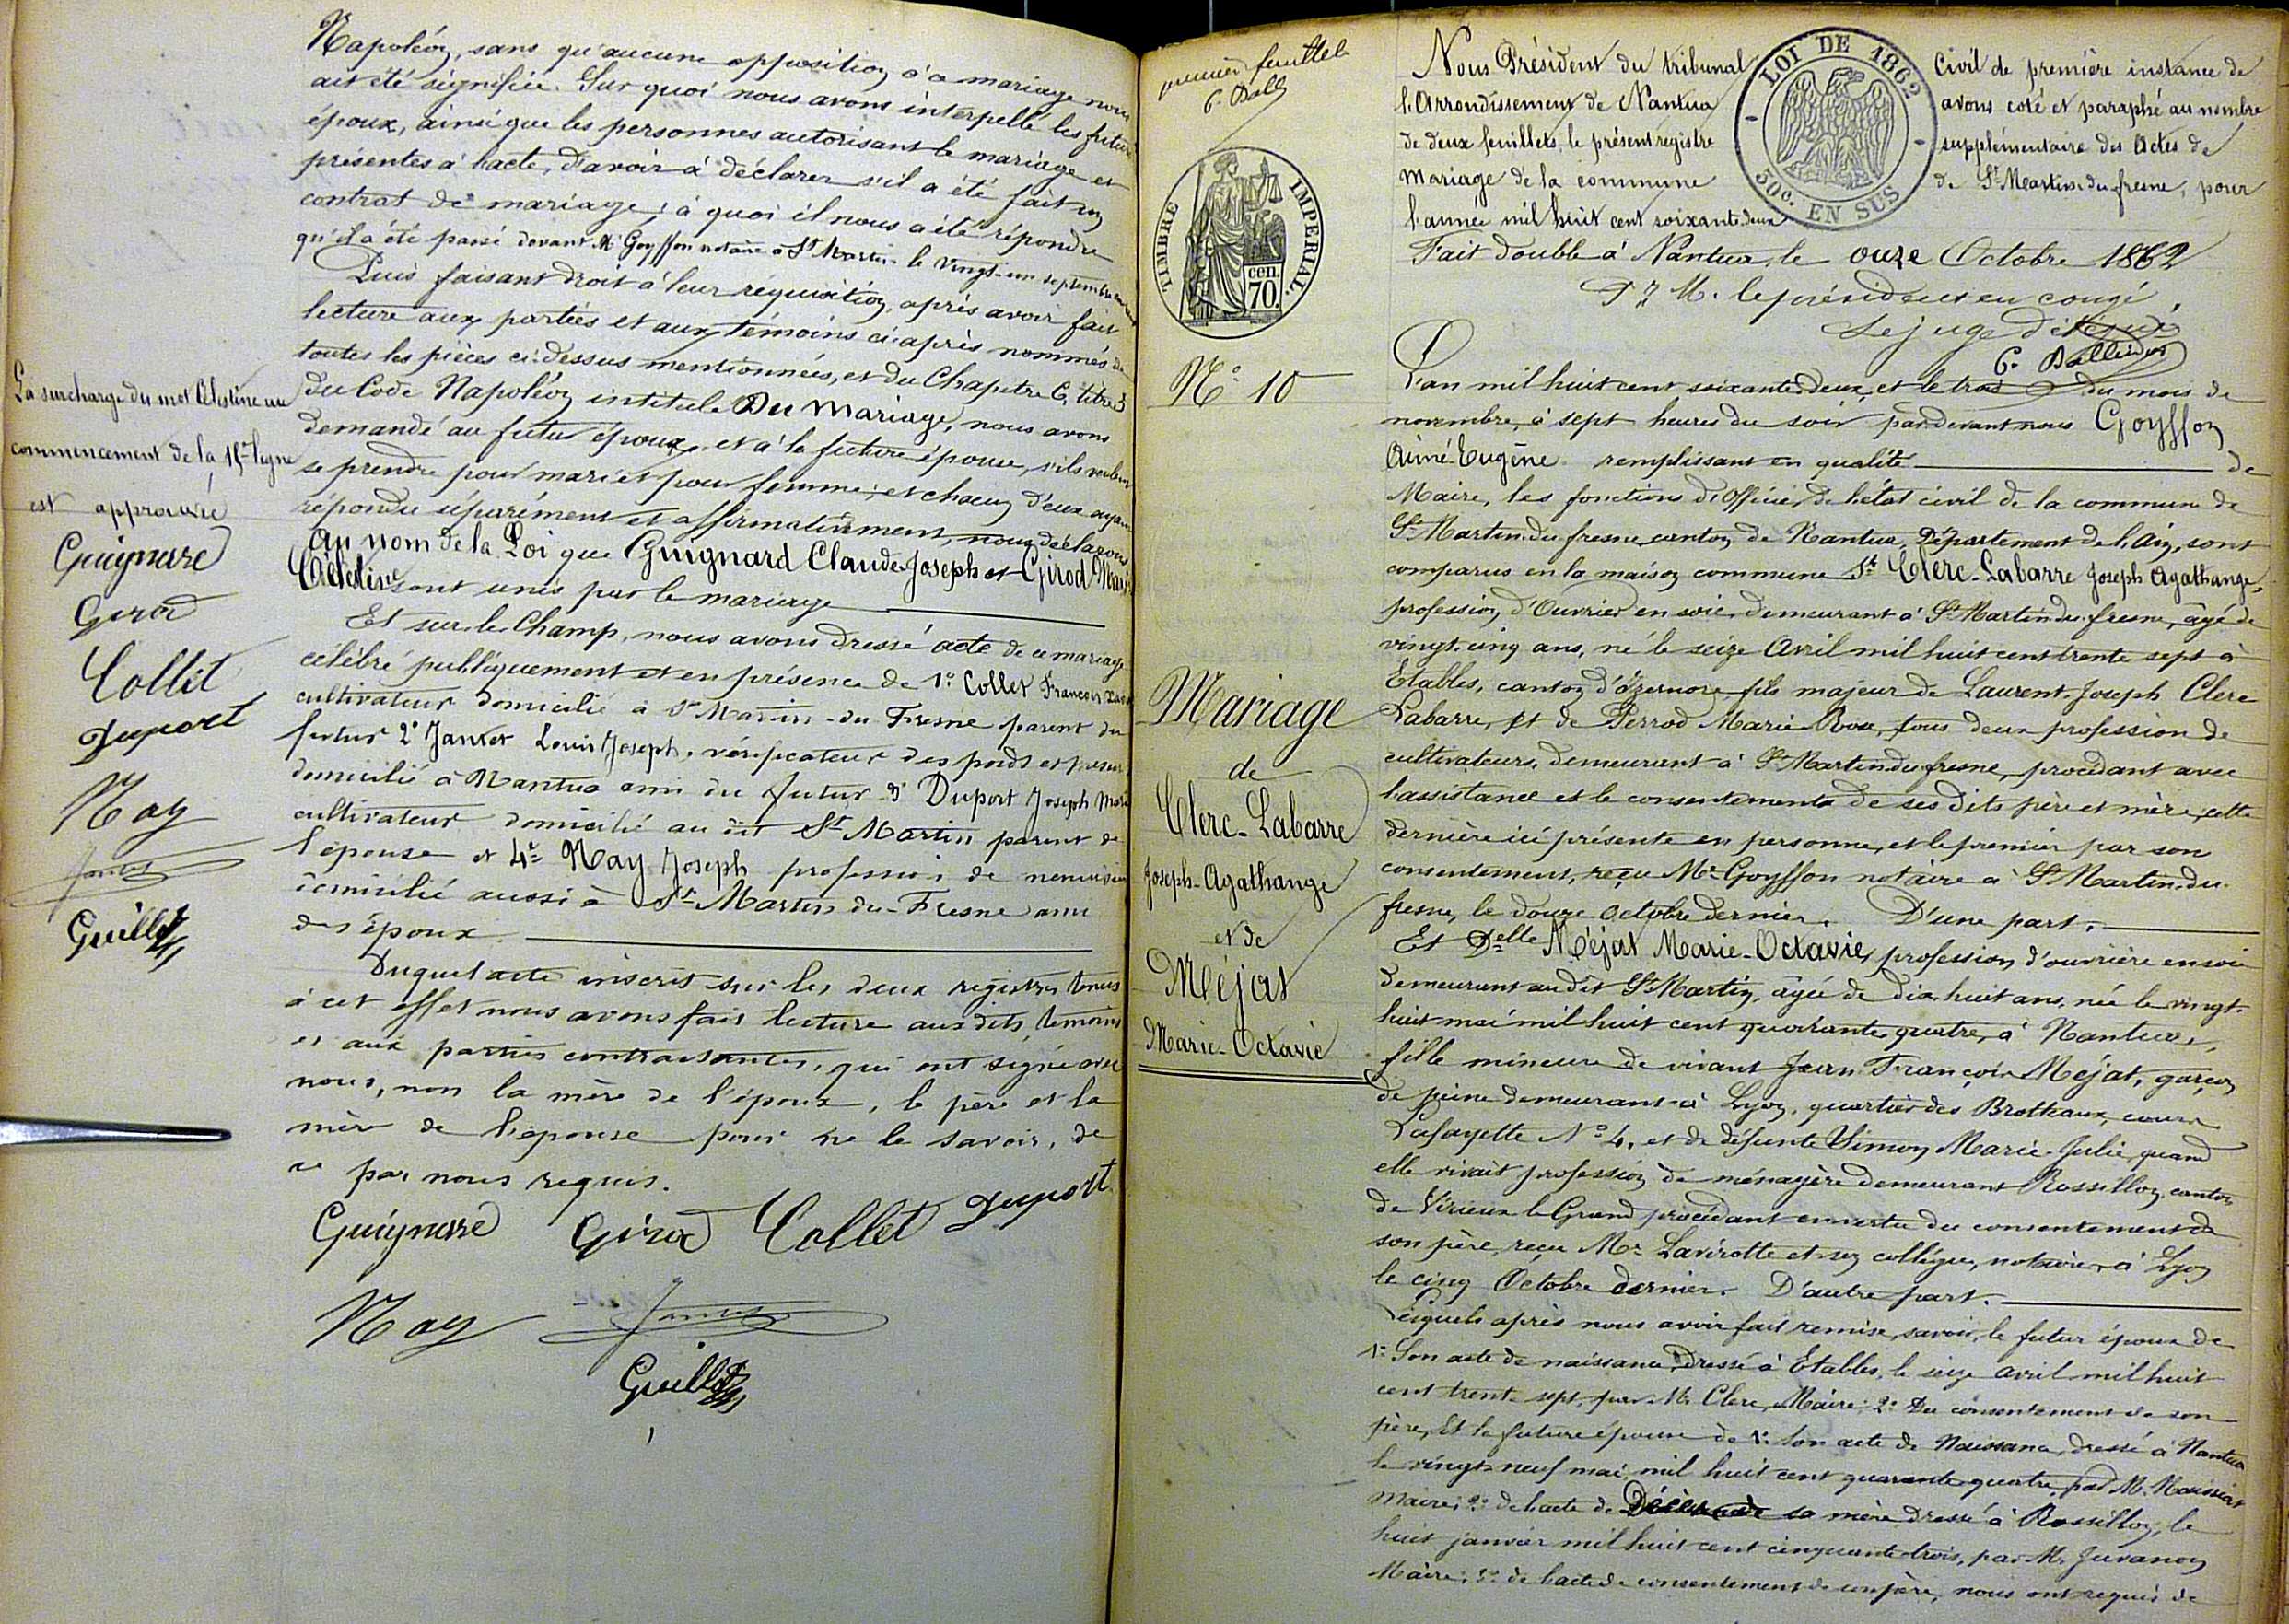 Napoléon, sans qu'aucune opposition à ce mariage nous
ait été signifiée. Sur quoi nous avons interpellé les futurs
époux, ainsi que les personnes autorisant le mariage et
présentes à l'acte, d'avoir à déclarer s'il a été fait un
contrat de mariage; à quoi il nous a été répondre
qu'il a été passé devant Me Goyffon notaire à St Martin le vingt-un septembre
Puis faisant droit à leur réquisition, après avoir fait
lecture aux parties et aux témoins ci-après nommés de
toutes les pièces ci-dessus mentionnées, et du Chapitre 6, titre 5
du Code Napoléon intitulé Du Mariage, nous avons
demandé au futur époux et à la future épouse, s'ils veulent
se prendre pour mari et pour femme; et chacun d'eux ayant
répondu séparément et affirmativement, nous déclarons
Au nom de la Loi que Guignard Claude-Joseph et Girod Marie
Célestine sont unis par le mariage
Et sur le Champ, nous avons dressé acte de ce mariage
célébré publiquement et en présence de 1° Collet François
cultivateur domicilié à St Martin-du-Fresne parent du
futur 2° Jantet Louis Joseph, vérificateur des poids et mesures
domicilié à Nantua ami du futur 3° Duport Joseph Marie
cultivateur domicilié au dit St Martin parent de
l'épouse et 4° Nay Joseph profession de menuisier
domicilié aussi à St Martin du-Fresne ami
des époux
Duquel acte inscrit sur les deux registres tenus
à cet effet nous avons fait lecture aux dits témoins
et aux parties contractantes, qui ont signé avec
nous, non la mère de l'époux, le père et la
mère de l'épouse pour ne le savoir, de
ce par nous requis.
Guignard Girod Collet Duport
Nay Jantet
Guillot
La surcharge du mot Célestine au
commencement de la 15me ligne
est approuvée
Guignard
Girod
Collet
Duport
Nay
Jantet
Guillot
premier feuillet
C. Ball
TIMBRE IMPERIAL.
cen.
70.
LOI DE 1862
50c. EN SUS
Nous Président du tribunal Civil de première instance de
l'Arrondissement de Nantua avons coté et paraphé au nombre
de deux feuillets, le présent registre supplémentaire des Actes de
Mariage de la commune de St Martin-du-fresne, pour
l'année mil huit cent soixante-deux
Fait double à Nantua, le onze Octobre 1862
Pr M. le président en congé,
Le juge délégué
N° 10
Mariage
de
Clerc-Labarre
Joseph-Agathange
et de
Méjat
Marie-Octavie
L'an mil huit cent soixante-deux, et le trois du mois de
novembre, à sept heures du soir pardevant nous Goyffon
Aimé-Eugène remplissant en qualité de
Maire, les fonctions d'Officier de l'état civil de la commune de
St Martin-du-fresne canton de Nantua, Département de l'Ain, sont
comparus en la maison commune Sr Clerc-Labarre Joseph Agathange,
profession d'Ouvrier en soie, demeurant à St Martin-du-fresne, âgé de
vingt-cinq ans, né le seize Avril mil huit cent trente sept à
Etables, canton d'Izernore fils majeur de Laurent-Joseph Clerc
Labarre, et de Perrod Marie Rose, tous deux profession de
cultivateurs, demeurant à St Martin-du-fresne, procédant avec
l'assistance et le consentement de ses dits père et mère, cette
dernière ici présente en personne, et le premier par son
consentement, reçu Me Goyffon notaire à St Martin-du-
fresne, le douze Octobre dernier. D'une part.
Et Delle Méjat Marie-Octavie, profession d'ouvrière en soie
demeurant audit St Martin, âgée de dix huit ans, née le vingt-
huit mai mil huit cent quarante quatre, à Nantua,
fille mineure de vivant Jean François Méjat, garçon
de peine demeurant à Lyon, quartier des Brotteaux, cours
Lafayette N° 4, et de défunte Simon Marie-Julie, quand
elle vivait profession de ménagère demeurant Rossillon, canton
de Virieux le Grand procédant en vertu du consentement de
son père, reçu Me Lavirotte et son collègue, notaires à Lyon
le cinq Octobre dernier. D'autre part.
Lesquels après nous avoir fait remise, savoir, le futur époux de
1° Son acte de naissance, dressé à Etables, le seize avril mil huit
cent trente sept, par M. Clerc, Maire; 2° Du consentement de son
père, Et la future épouse de 1° Son acte de Naissance, dressé à Nantua
le vingt-neuf mai mil huit cent quarante quatre, par M.
Maire; 2° de l'acte de Décès de sa mère dressé à Rossillon, le
huit janvier mil huit cent cinquante-trois, par M. Juvanon
Maire; 3° de l'acte de consentement de son père, nous ont requis de